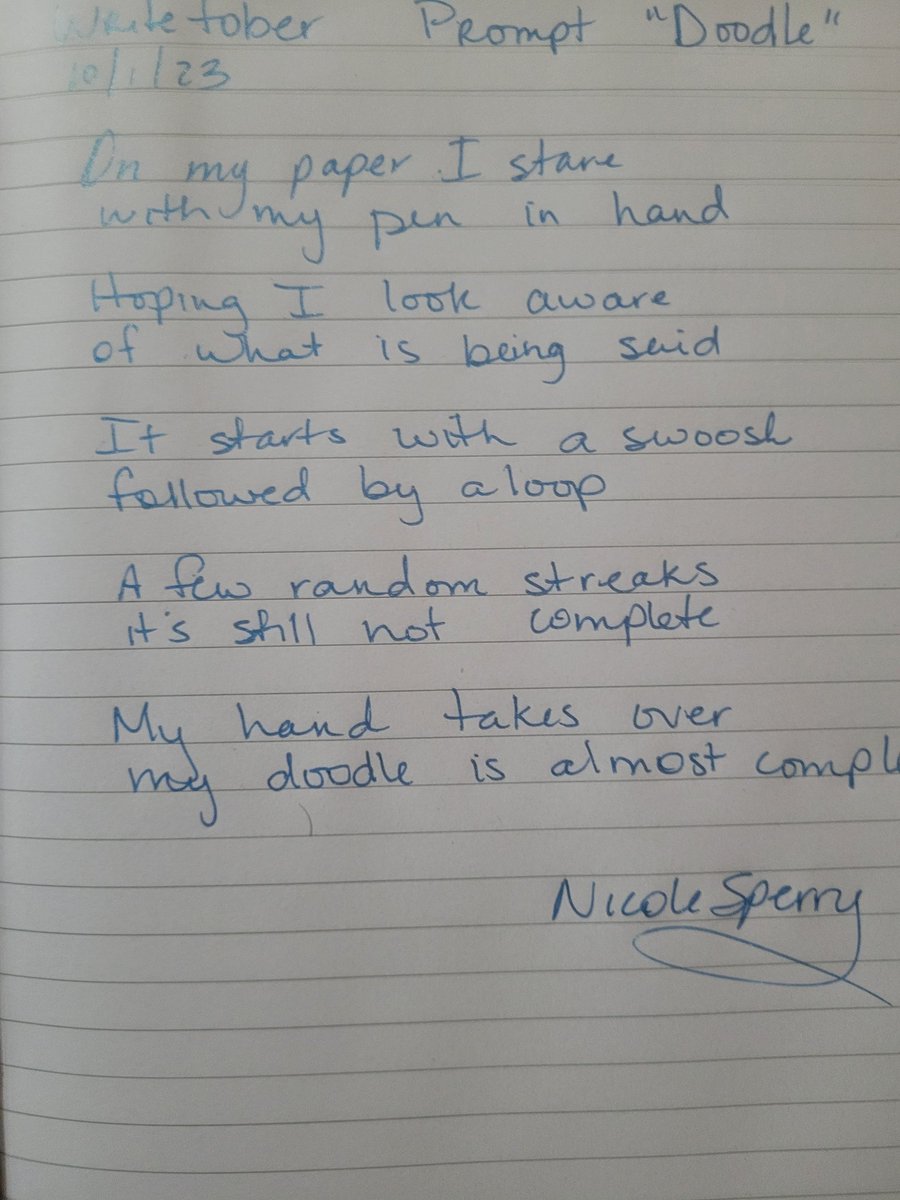 Writetober Prompt "Doodle"
10/1/23
On my paper I stare
with my pen in hand
Hoping I look aware
of what is being said
It starts with a swoosh
followed by a loop
A few random streaks
it's still not complete
My hand takes over
my doodle is almost comple
Nicole Sperry